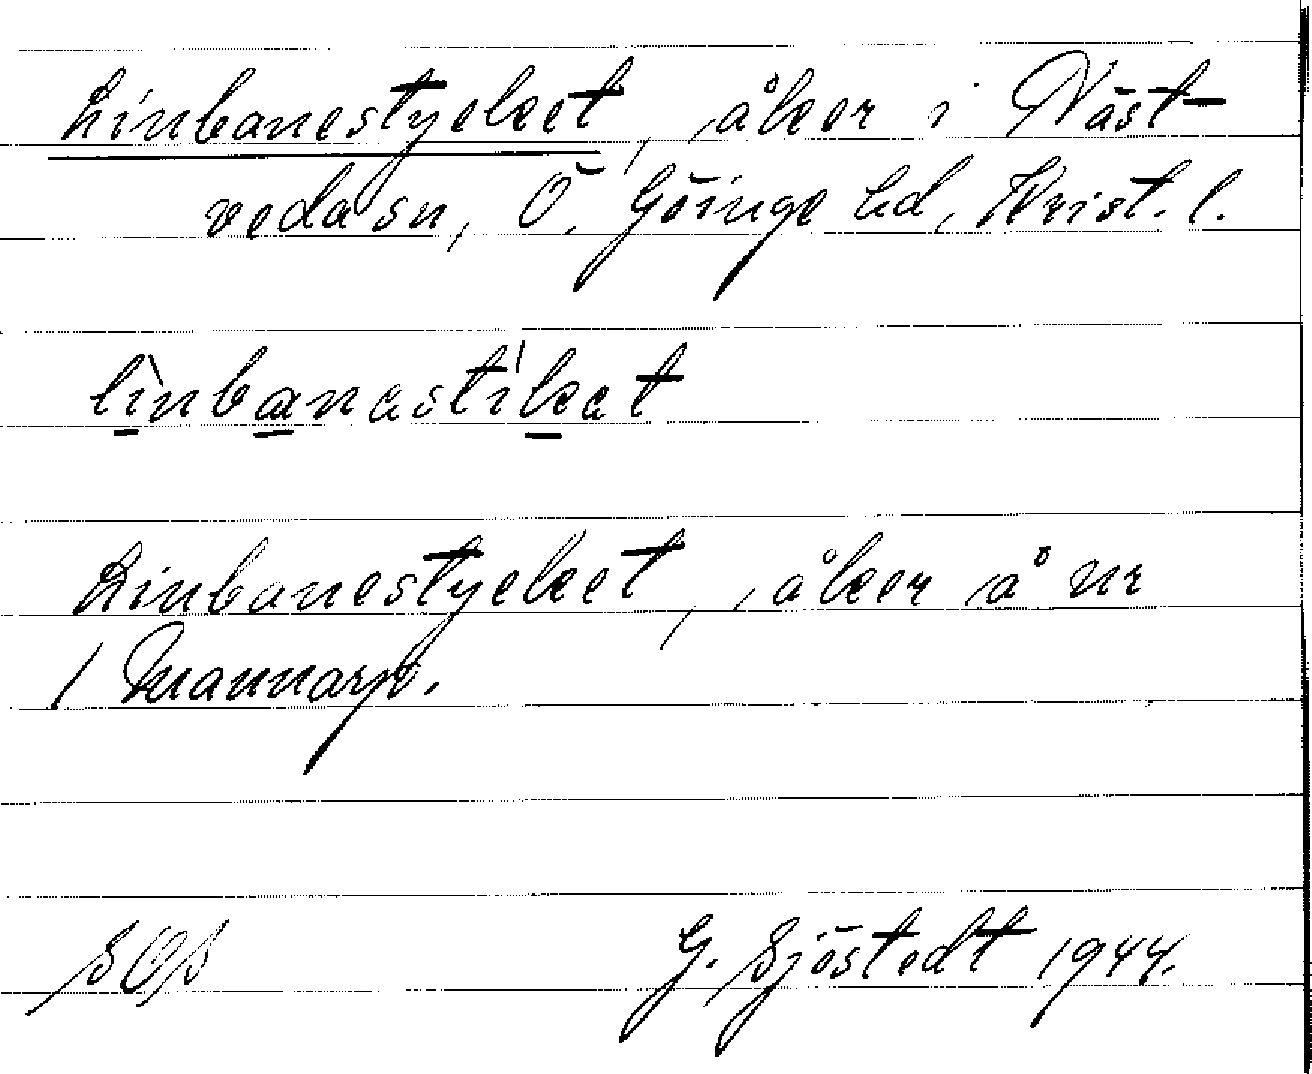 Linbanestycket, åker i Näst-
veda sn, Ö. Göinge hd, Krist. l.
lìnbanastikat
Linbanestycket, åker å nr
1 Mannarp.
SOS
G. Sjöstedt 1944.